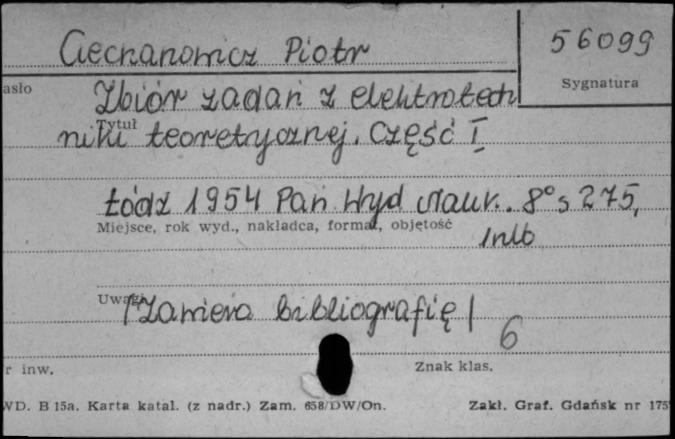 Ciechanowicz Piotr
56099
asło
Sygnatura
Zbiór zadań z elektrotech
Tytuł
niki teoretycznej. Część I
Łódź 1954 Pań Wyd Nauk. 8° s 275,
Miejsce, rok wyd., nakładca, format, objętość
1nlb
Uwagi
/Zawiera bibliografię/
6
r inw.
Znak klas.
WD. B 15a. Karta katal. (z nadr.) Zam. 658/DW/On.
Zakł. Graf. Gdańsk nr 175